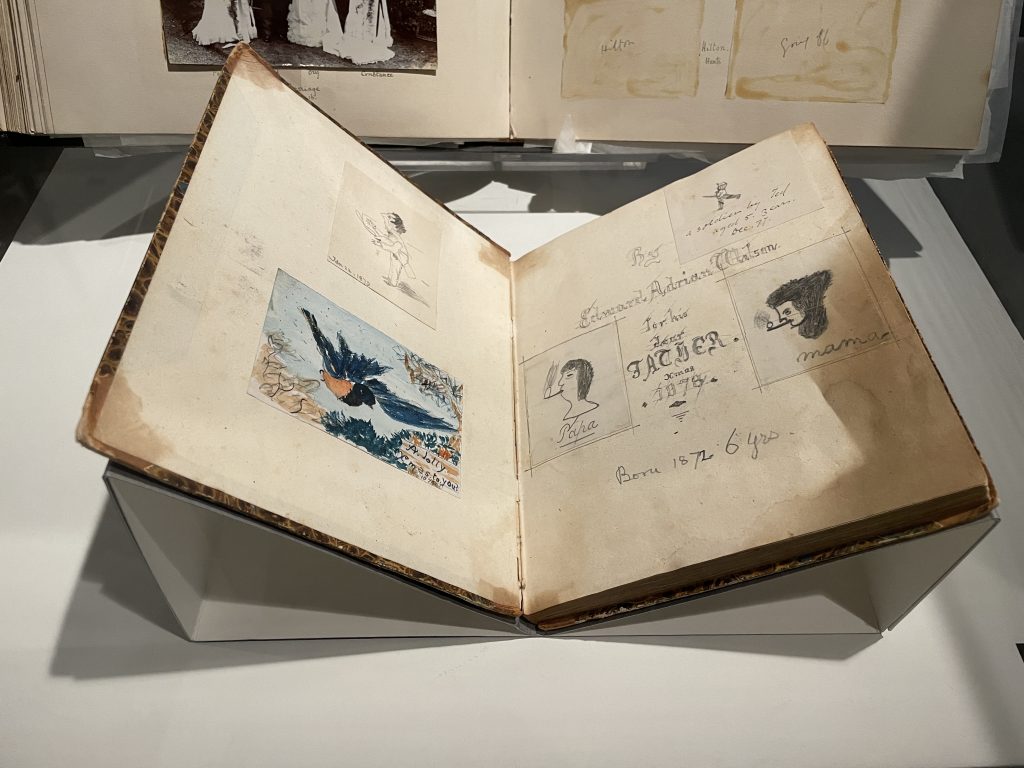 Constance
Hilton
Hilton
A Jolly
Xmas to you!
a soldier by Ted
aged 5 years.
Dec 77
By
Edward Adrian Wilson.
for his
dear
FATHER.
Xmas
1878
Papa
mama.
Born 1872 6 yrs.